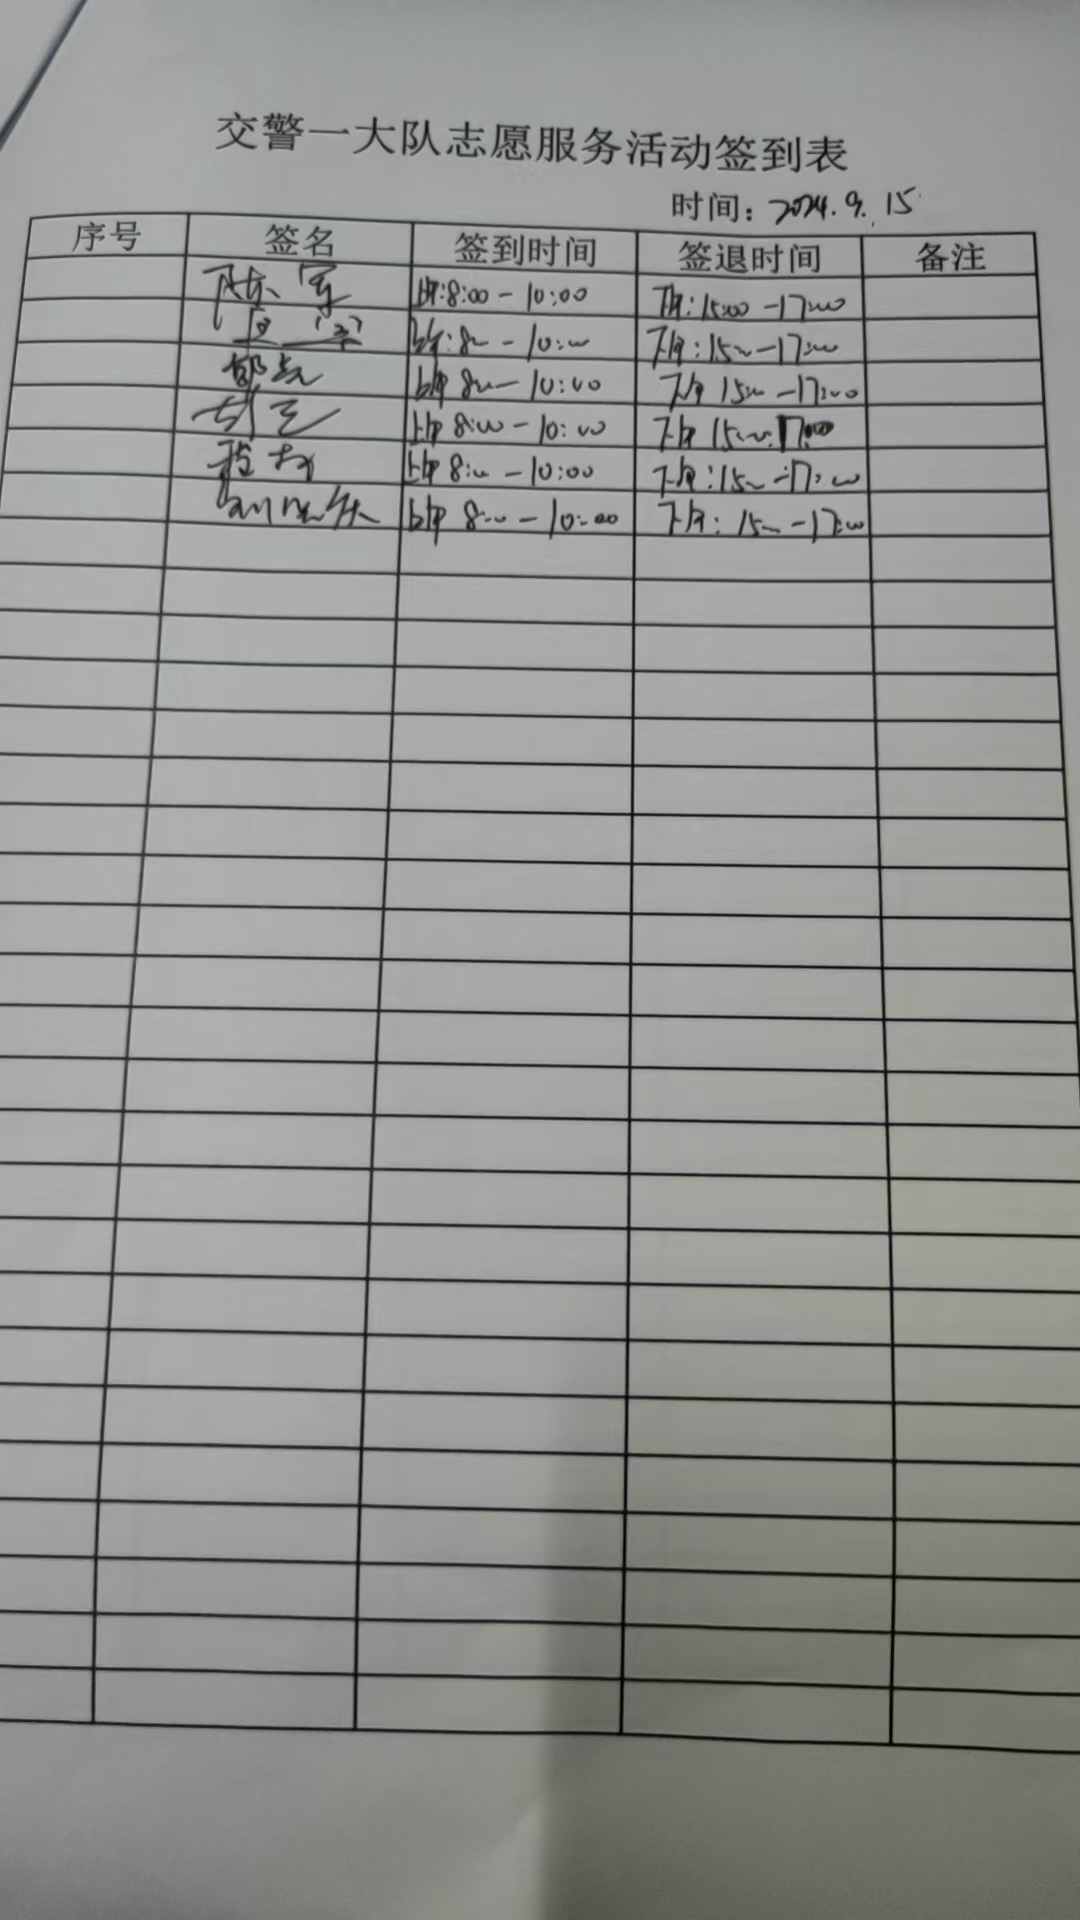 交警一大队志愿服务活动签到表
时间：2024.9.15
序号 签名 签到时间 签退时间 备注
陈军 上午:8:00-10:00 下午:15:00-17:00
上午:8:00-10:00 下午:15:00-17:00
上午 8:00-10:00 下午 15:00-17:00
上午 8:00-10:00 下午 15:00-17:00
上午 8:00-10:00 下午:15:00-17:00
上午 8:00-10:00 下午:15:00-17:00